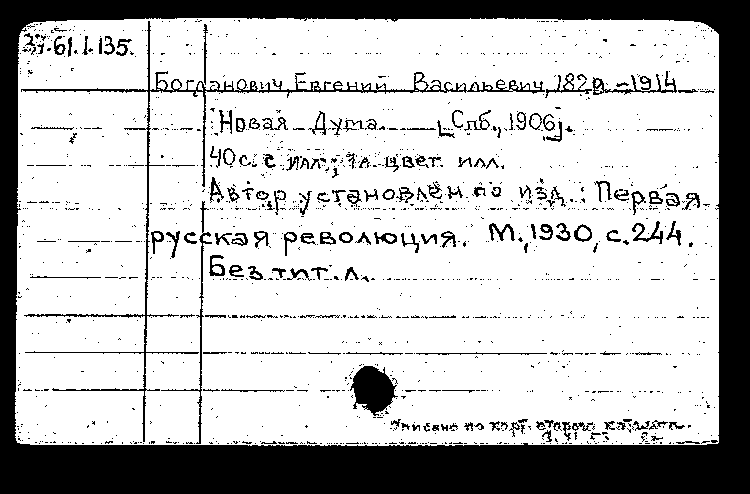 37.61.1.135.
Богданович, Евгений Васильевич, 1829-1914
Новая Дума. [Спб., 1906].
40с. с илл.; 1л. цвет. илл.
Автор установлен по изд.: Первая
русская революция. М., 1930, с. 244.
Без тит. л.
Описано по карт. старого каталога.